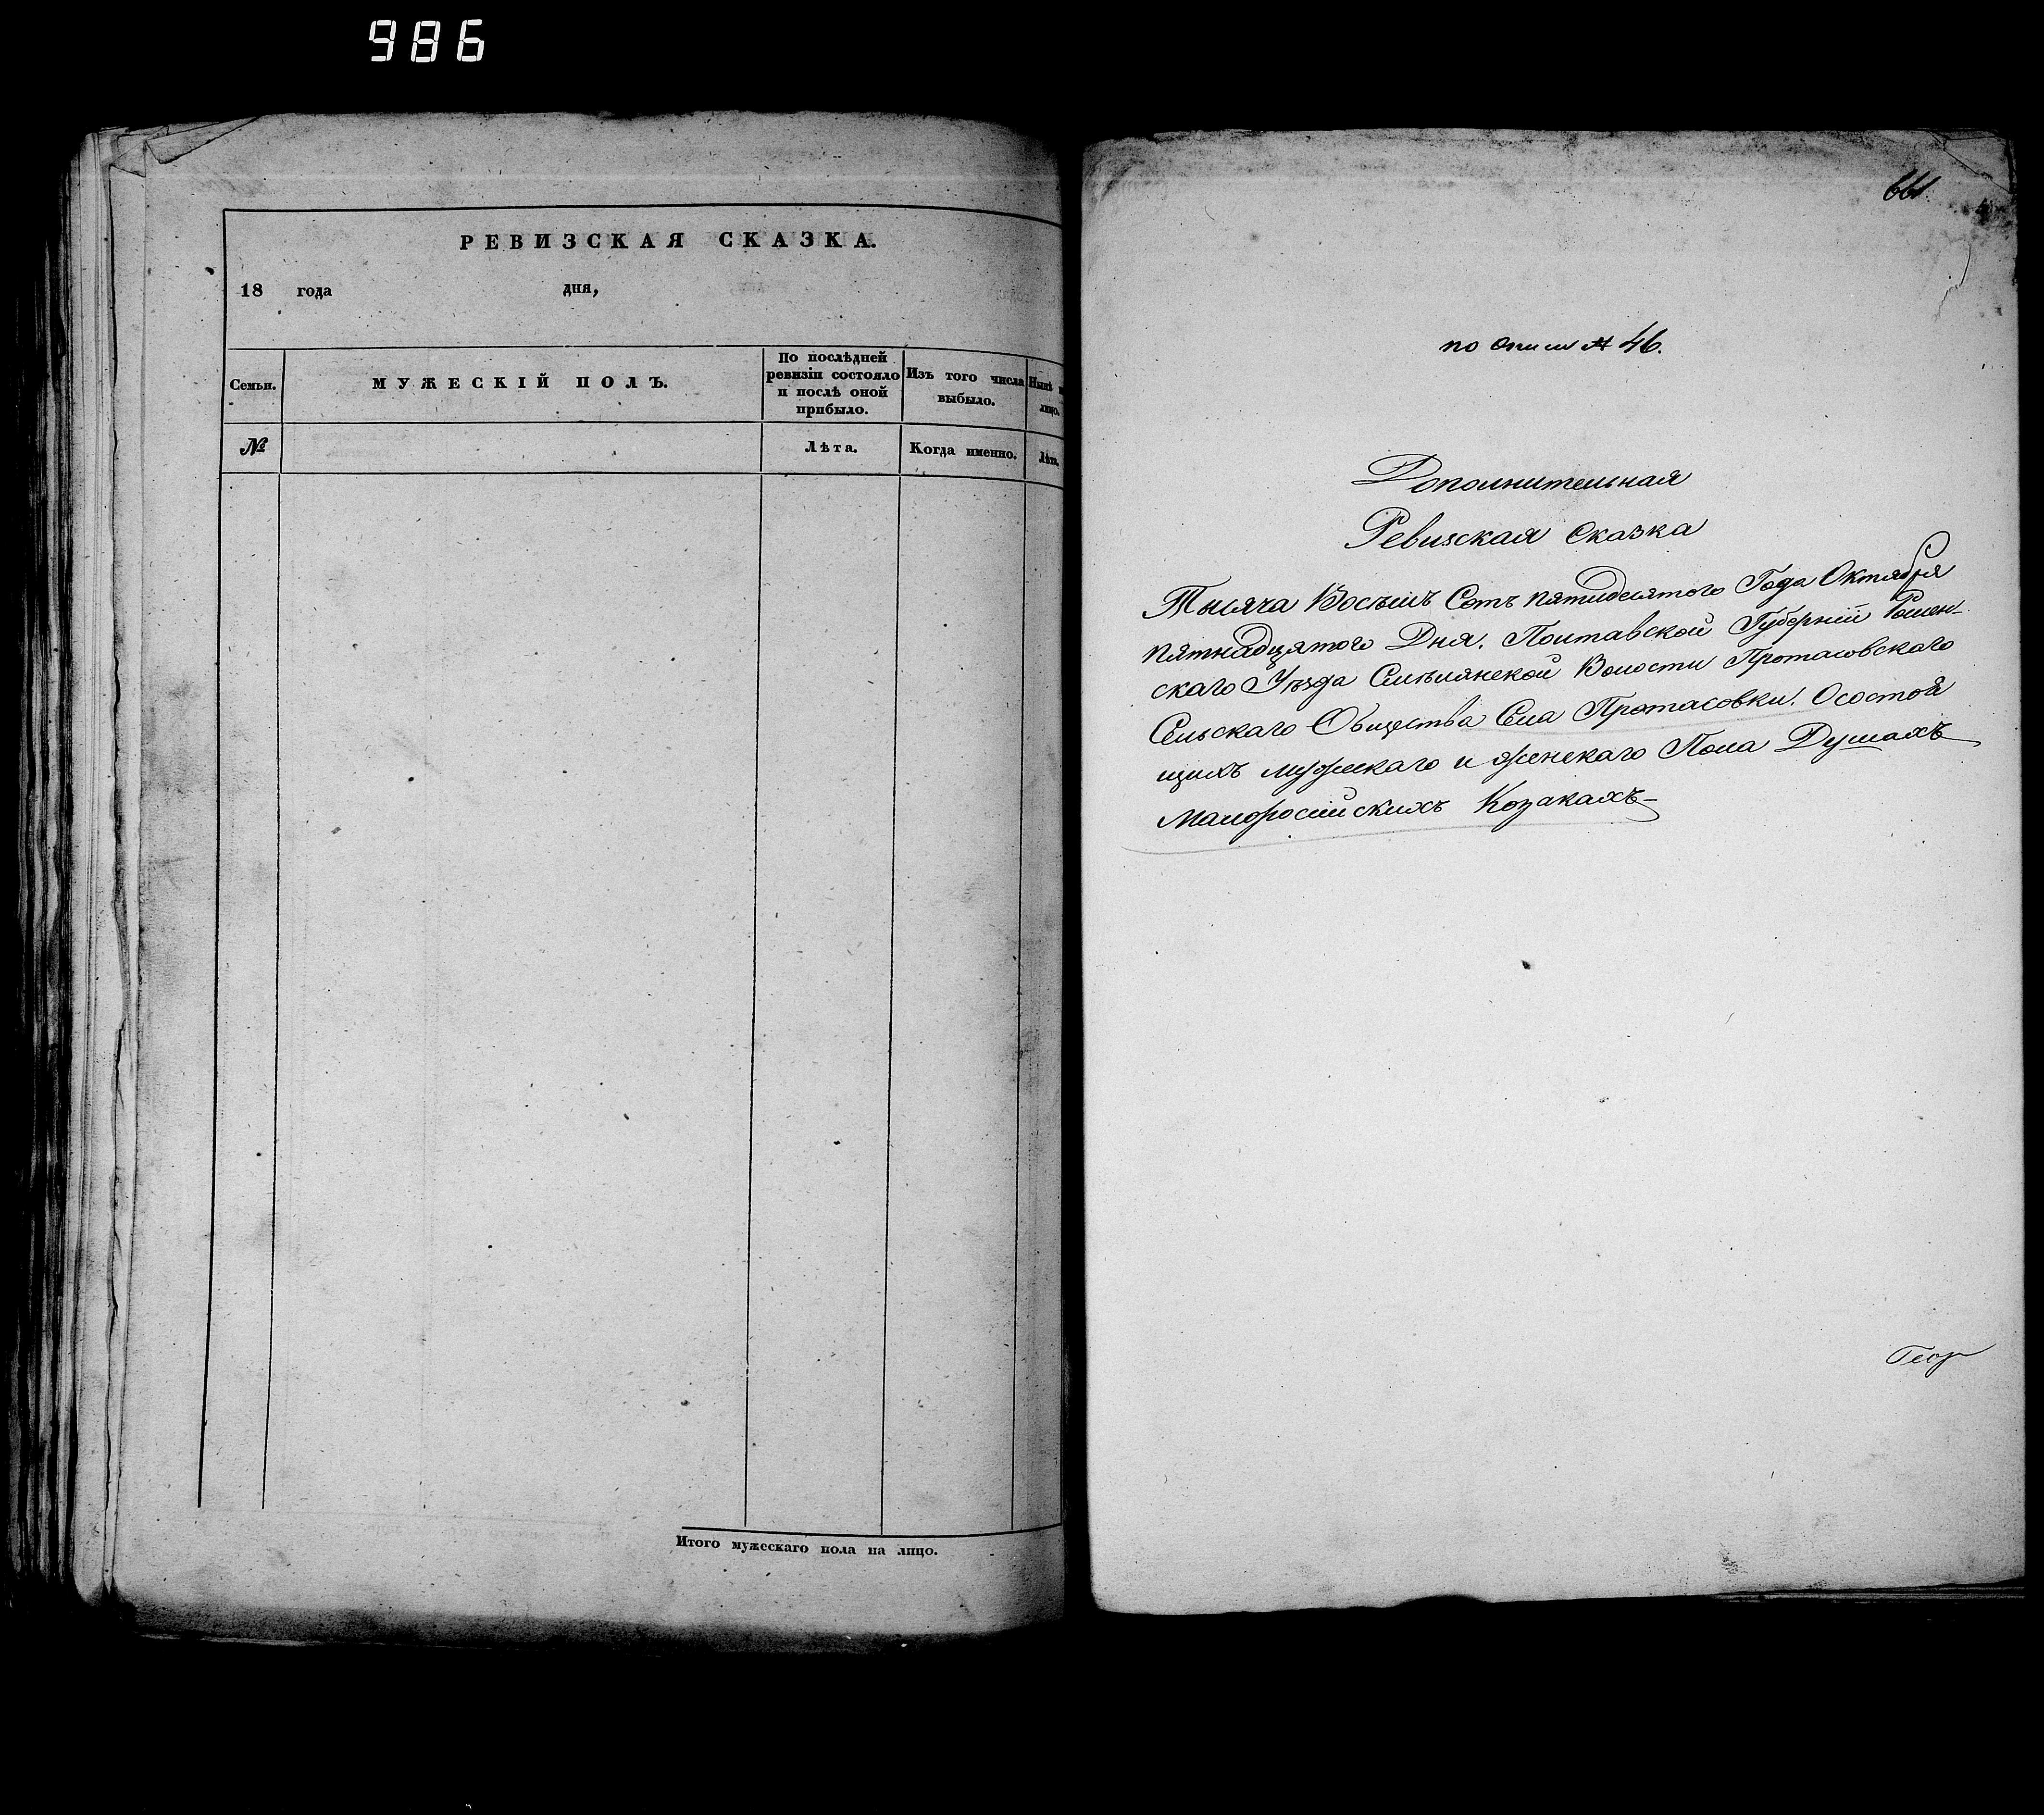 986
РЕВИЗСКАЯ СКАЗКА.
18 года дня,
Семьи.
МУЖЕСКІЙ ПОЛЪ.
По послѣдней
ревизіи состояло
и послѣ оной
прибыло.
Изъ того числа
выбыло.
Нынѣ н
лицо.
№
Лѣта.
Когда именно.
Лѣта.
Итого мужескаго пола на лицо.
661.
по описи № 46.
Дополнительная
Ревизская Сказка
Тысяча Восемь Сотъ пятидесятого Года Октября
пятнадцятого Дня. Полтавской Губерніи Ромен-
скаго Уѣзда Смѣлянской Волости Протасовскаго
Сельскаго Общества Села Протасовки. О состоя
щихъ мужескаго и женскаго Пола Душахъ
Малоросійскихъ Козакахъ-